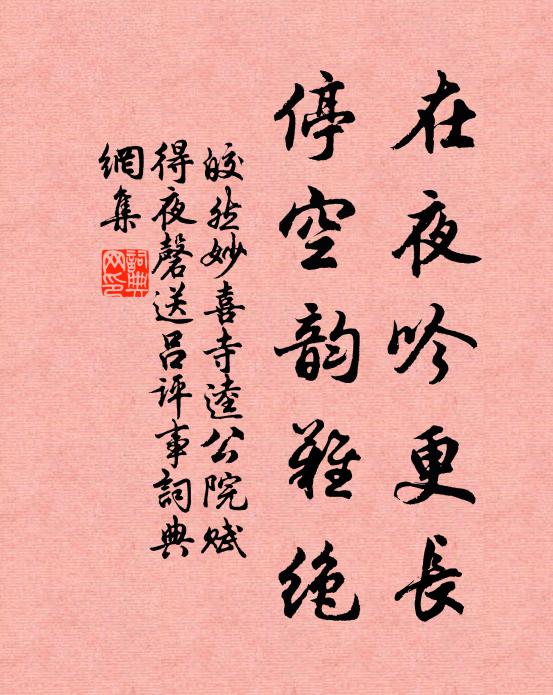 在夜吟更長
停空韵難絶
皎然妙喜寺逵公院賦
得夜磬送吕評事詞典
網集
詞典網印